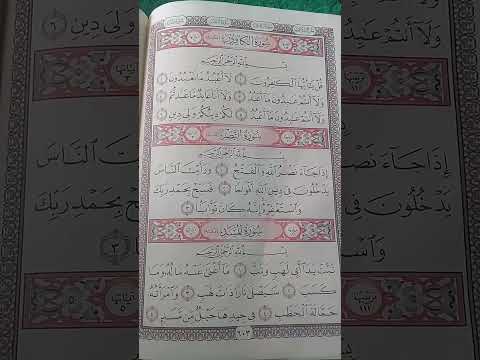 سُورَةُ الكَافِرُونَ
بِسْمِ اللَّهِ الرَّحْمَٰنِ الرَّحِيمِ
قُلْ يَٰٓأَيُّهَا ٱلْكَٰفِرُونَ ١ لَآ أَعْبُدُ مَا تَعْبُدُونَ ٢
وَلَآ أَنتُمْ عَٰبِدُونَ مَآ أَعْبُدُ ٣ وَلَآ أَنَا۠ عَابِدٌ مَّا عَبَدتُّمْ ٤
وَلَآ أَنتُمْ عَٰبِدُونَ مَآ أَعْبُدُ ٥ لَكُمْ دِينُكُمْ وَلِىَ دِينِ ٦
سُورَةُ النَّصْرِ
بِسْمِ اللَّهِ الرَّحْمَٰنِ الرَّحِيمِ
إِذَا جَآءَ نَصْرُ ٱللَّهِ وَٱلْفَتْحُ ١ وَرَأَيْتَ ٱلنَّاسَ
يَدْخُلُونَ فِى دِينِ ٱللَّهِ أَفْوَاجًا ٢ فَسَبِّحْ بِحَمْدِ رَبِّكَ
وَٱسْتَغْفِرْهُ إِنَّهُۥ كَانَ تَوَّابًۢا ٣
سُورَةُ المَسَدِ
بِسْمِ اللَّهِ الرَّحْمَٰنِ الرَّحِيمِ
تَبَّتْ يَدَآ أَبِى لَهَبٍ وَتَبَّ ١ مَآ أَغْنَىٰ عَنْهُ مَالُهُۥ وَمَا
كَسَبَ ٢ سَيَصْلَىٰ نَارًا ذَاتَ لَهَبٍ ٣ وَٱمْرَأَتُهُۥ
حَمَّالَةَ ٱلْحَطَبِ ٤ فِى جِيدِهَا حَبْلٌ مِّن مَّسَدٍۭ ٥
٦٠٣